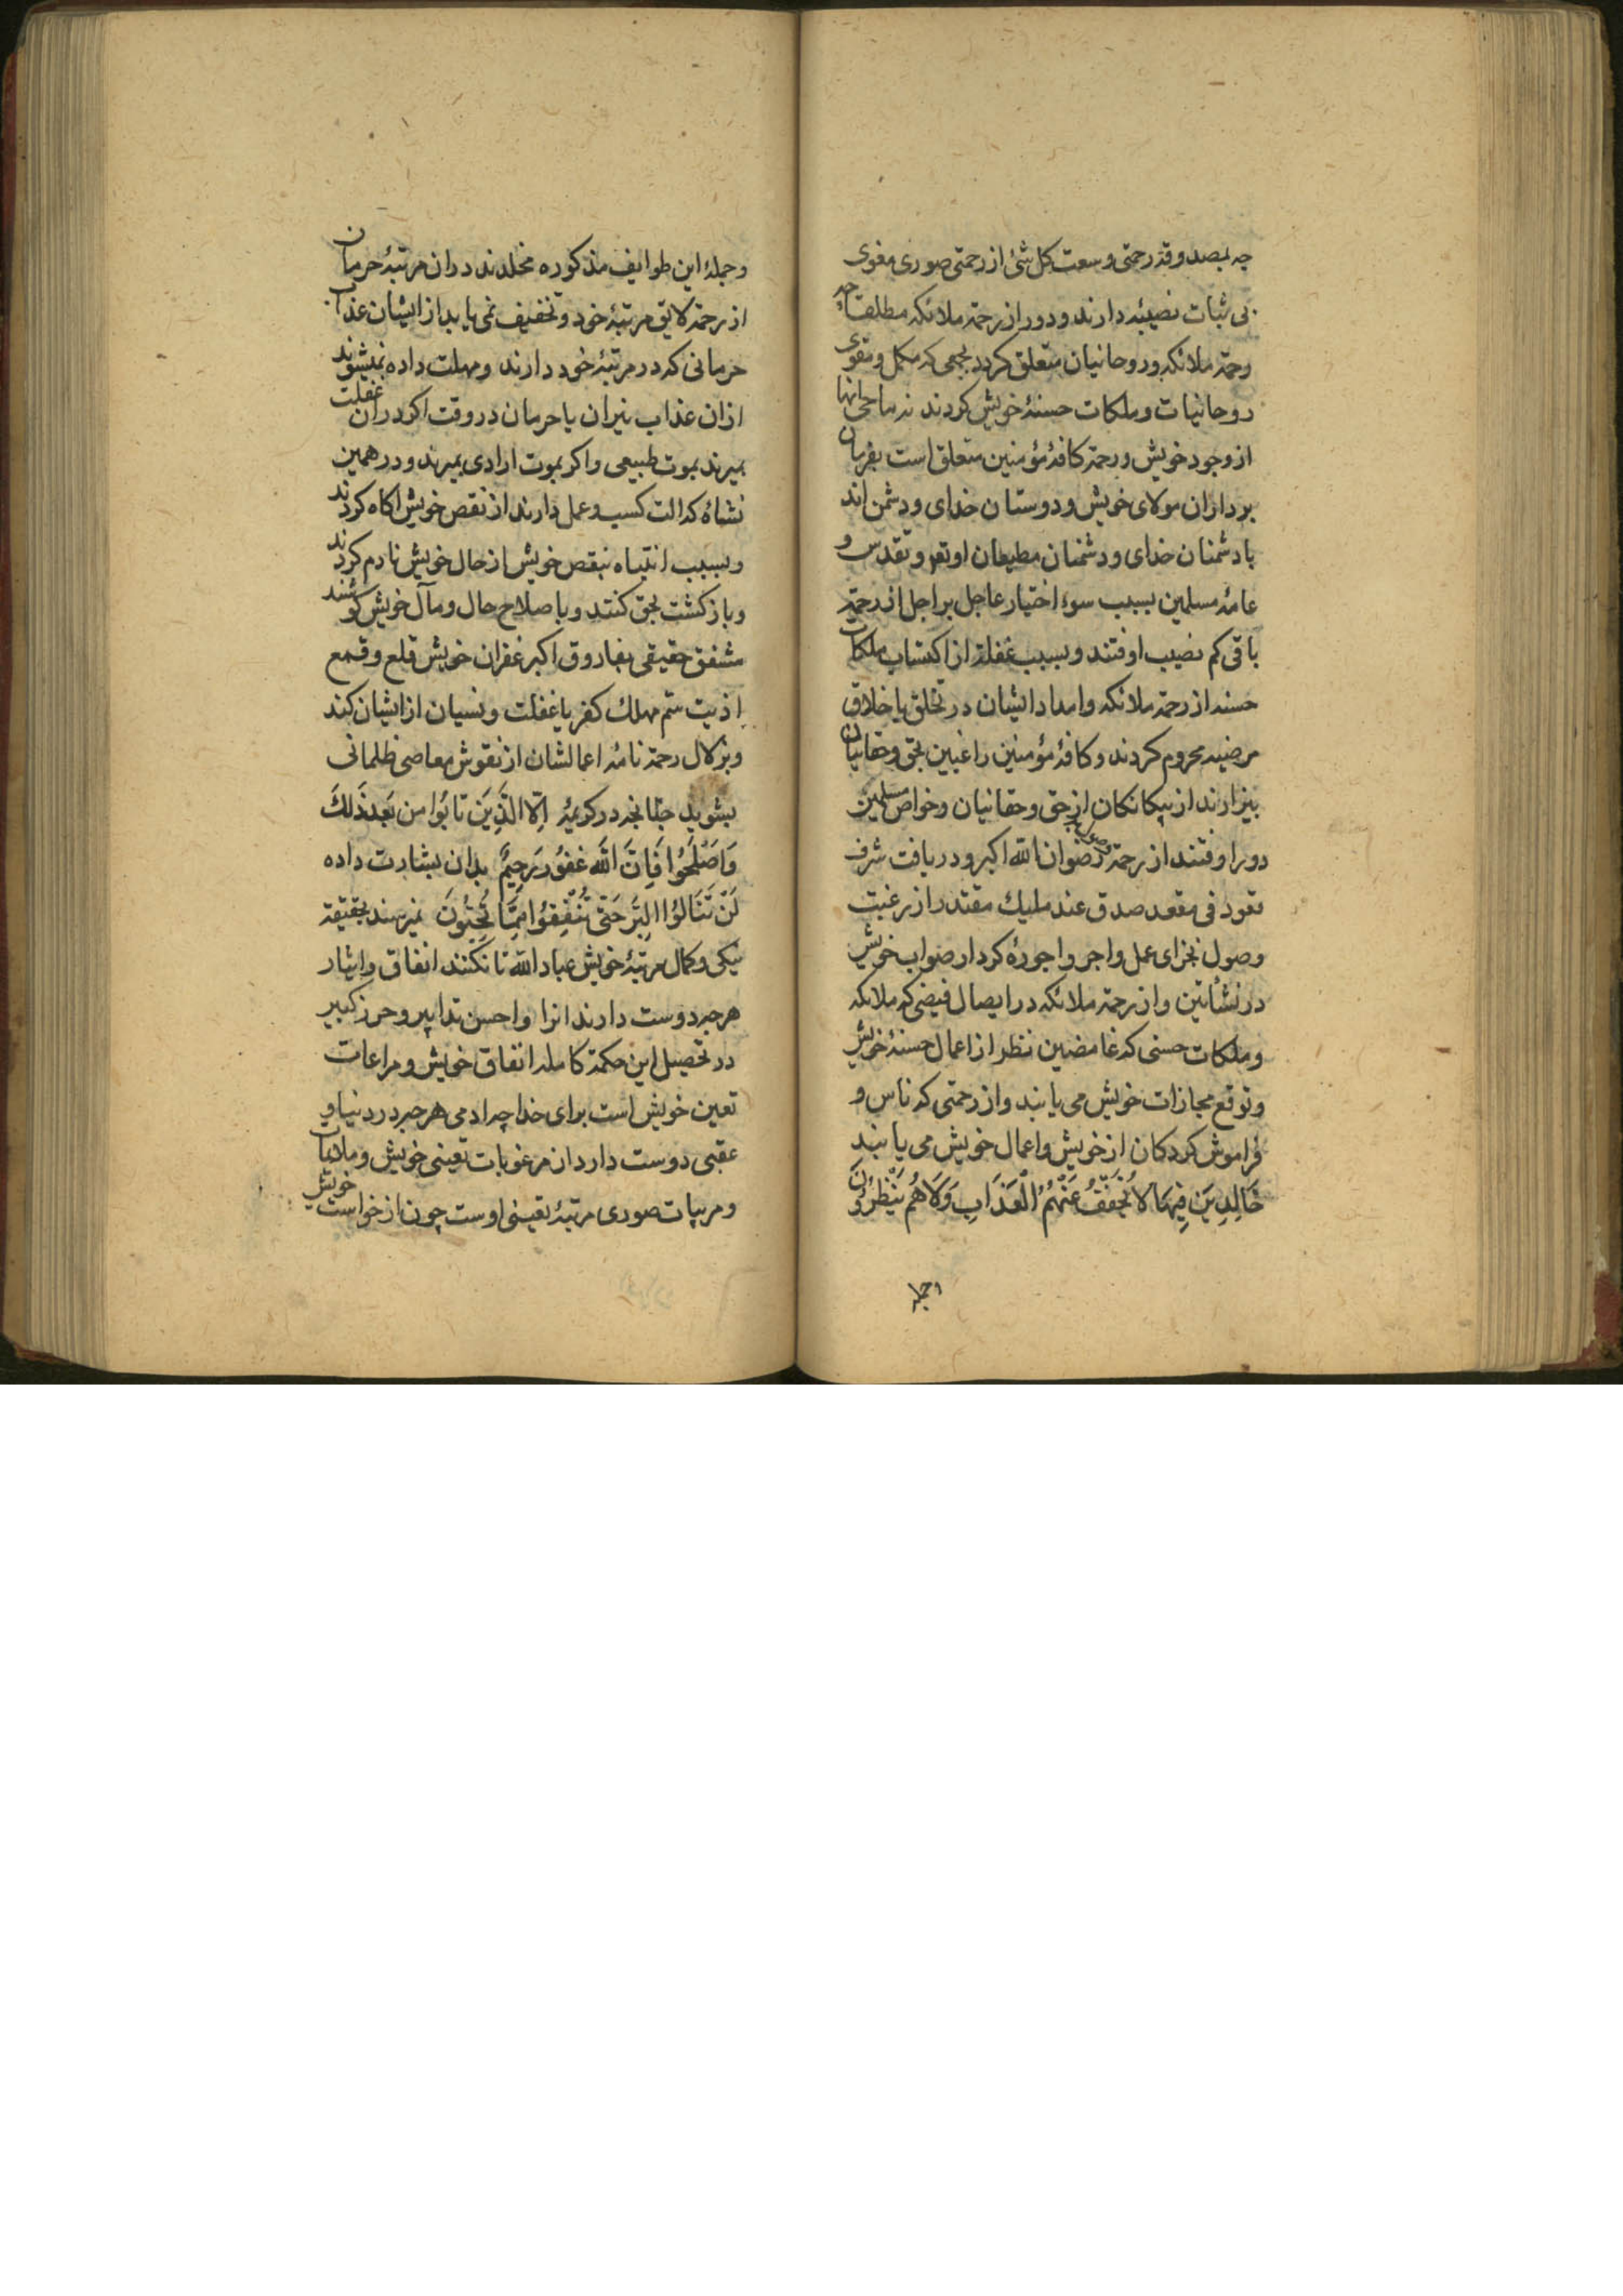 چه بمصدوقه رحمتی وسعت کل شئ از رحمتی صوری مغوی
بی ثبات نصیبه دارند و دور از رحمة ملائکه مطلقا چه
رحمة ملائکه و روحانیان متعلق کردد بجمعی که مکمل و مقوی
روحانیات و ملکات حسنهٔ خویش کردند نه ماحی انها
از وجود خویش و رحمة کافهٔ مؤمنین متعلق است بفرمان
برداران مولای خویش و دوستان خدای و دشمن اند
با دشمنان خدای و دشمنان مطیعان او تعم و تقدس و
عامهٔ مسلمین بسبب سوء اختیار عاجل بر اجل از رحمة
باقی کم نصیب اوفتند و بسبب غفلة از اکتساب ملکات
حسنه از رحمة ملائکه و امداد ایشان در تخلق باخلاق
مرضیه محروم کردند و کافهٔ مؤمنین راغبین بحق و حقانیان
بیزارند از بیکانکان از حق و حقانیان و خواص مسلمین
دور اوفتند از رحمة رضوان الله اکبر و دریافت شرف
قعود فی مقعد صدق عند ملیك مقتدر از رغبت
وصول بجزای عمل و اجر و اجورهٔ کردار صواب خویش
در نشأتین و از رحمة ملائکه در ایصال فیضی که ملائکه
و ملکات حسنی که غامضین نظر از اعمال حسنهٔ خویش
و توقع مجازات خویش می یابند و از رحمتی که ناس و
فراموش کردکان از خویش و اعمال خویش می یابند
خَالِدِینَ فِیهَا لَا یُخَفَّفُ عَنْهُمُ الْعَذَابِ وَلَا هُم یُنْظَرُونَ
وجملهٔ
وجملهٔ این طوایف مذکوره مخلدند در ان مرتبهٔ حرمان
از رحمة لایق مرتبهٔ خود و تخفیف نمی یابد از ایشان عذاب
حرمانی که در مرتبهٔ خود دارند و مهلت داده نمیشوند
ازان عذاب نیران یا حرمان در وقت اکر دران غفلت
بمیرند بموت طبیعی و اکر بموت ارادی بمیرند و در همین
نشاهٔ که الت کسب و عمل دارند از نقص خویش اکاه کردند
و بسبب انتباه بنقص خویش از حال خویش نادم کردند
و بازکشت بحق کنند و باصلاح حال و مآل خویش کوشند
مشفق حقیقی بفاروق اکبر غفران خویش قلع و قمع
اذیت ستم مهلك کفر یا غفلت و نسیان از ایشان کند
و بزلال رحمة نامهٔ اعمالشان از نقوش معاصی ظلمانی
بشوید چنانچه در کریمهٔ اِلَّا الَّذِینَ تَابُوا من بَعْدِ ذَلكَ
وَاَصْلَحُوا فَاِنَّ اللّٰه غَفُورٌ رَحِیمٌ بدان بشارت داده
لَنْ تَنَالُوُا الْبِرَّ حَتّٰی تُنْفِقُوا مِمَّا تُحِبُّونَ نمیرسند بحقیقة
نیکی و کمال مرتبهٔ خویش عباد الله تا نکنند انفاق و ایثار
هرچه دوست دارند انرا و احسن تدابیر و حرز کبیر
در تحصیل این حکمة کامله انفاق خویش و مراعات
تعین خویش است برای خدا چه ادمی هرچه در دنیا و
عقبی دوست دارد از مرغوبات تعینی خویش و ملایمات
و مربیات صوری مرتبهٔ تعینی اوست چون از خواست خویش